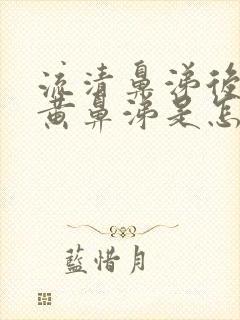 流清鼻涕後
黄鼻涕是怎
藍惜月